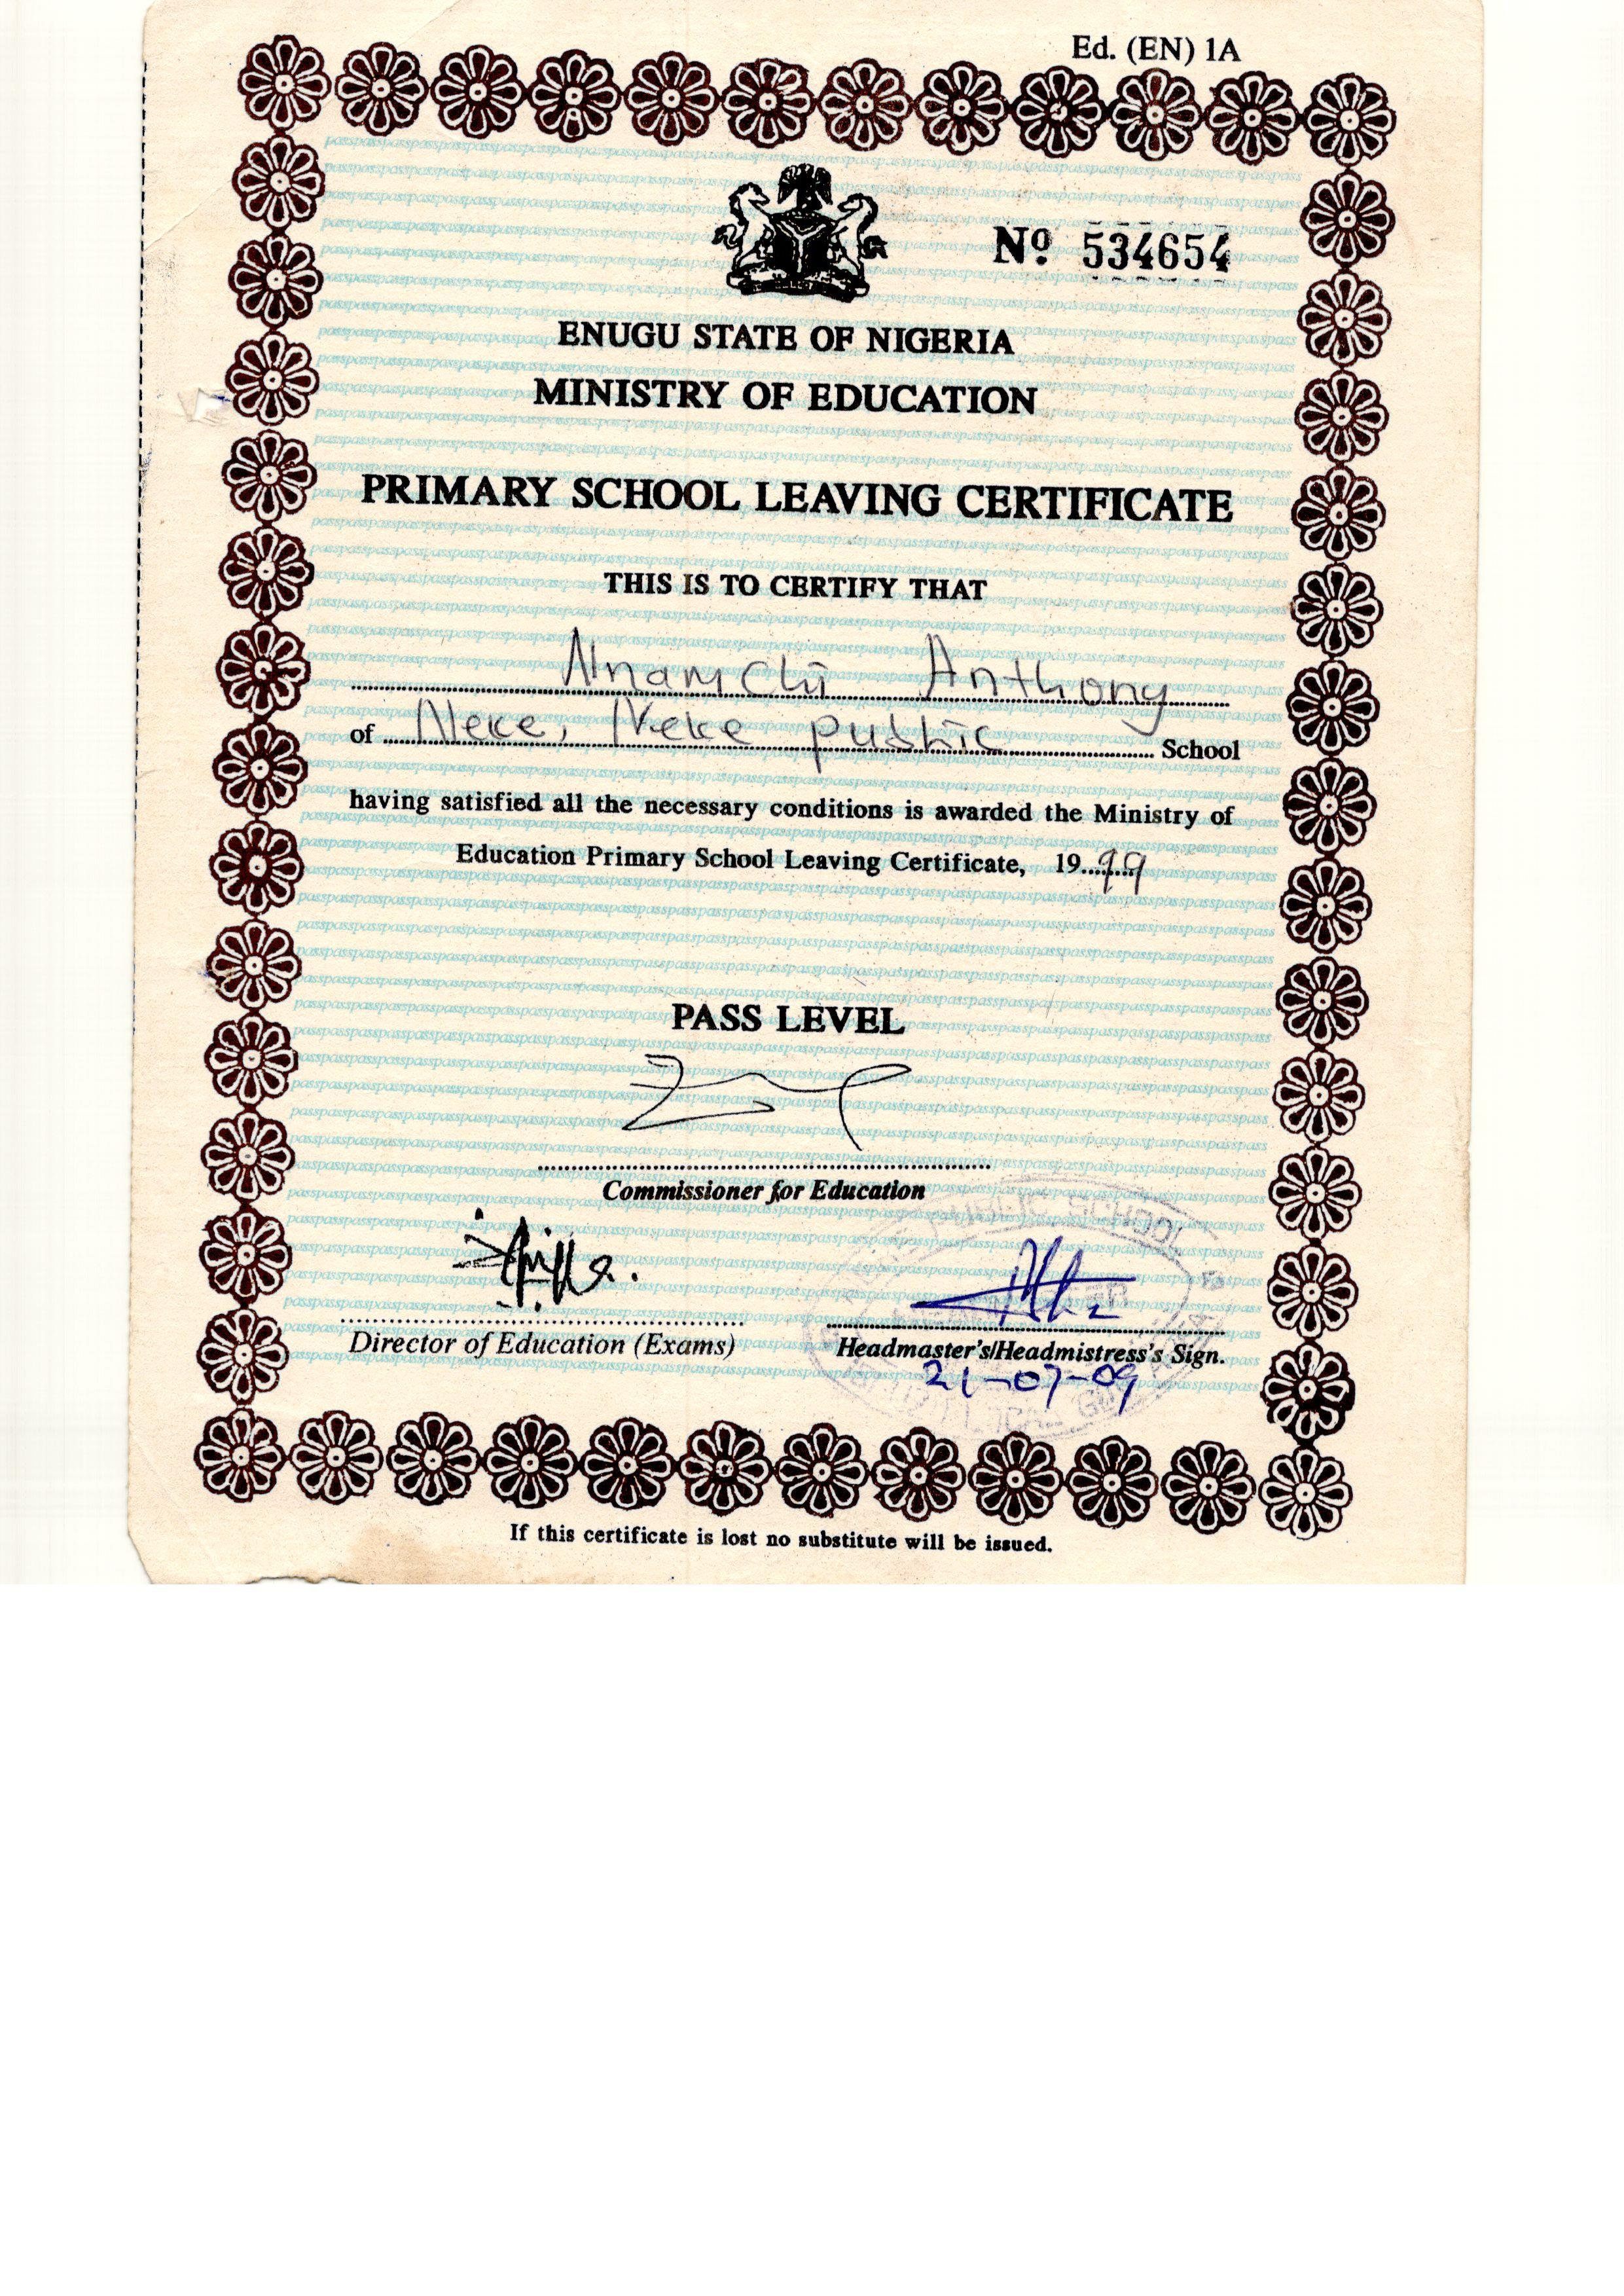 Ed. (EN) 1A
Nº 534654
ENUGU STATE OF NIGERIA
MINISTRY OF EDUCATION
PRIMARY SCHOOL LEAVING CERTIFICATE
THIS IS TO CERTIFY THAT
Nnamchi Anthony
of Neke, Neke public School
having satisfied all the necessary conditions is awarded the Ministry of
Education Primary School Leaving Certificate, 1999
PASS LEVEL
Commissioner for Education
Director of Education (Exams)
Headmaster's/Headmistress's Sign.
21-07-09
If this certificate is lost no substitute will be issued.